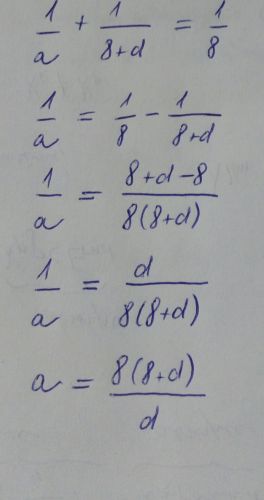 1/a + 1/(8+d) = 1/8
1/a = 1/8 - 1/(8+d)
1/a = (8+d-8)/(8(8+d))
1/a = d/(8(8+d))
a = (8(8+d))/d